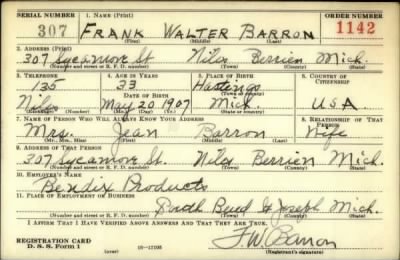 SERIAL NUMBER 1. NAME (Print) ORDER NUMBER
307 FRANK WALTER BARRON 1142
(First) (Middle) (Last)
2. ADDRESS (Print)
307 Sycamore St Niles Berrien Mich.
(Number and street or R. F. D. number) (Town) (County) (State)
3. TELEPHONE 4. AGE IN YEARS 5. PLACE OF BIRTH 6. COUNTRY OF CITIZENSHIP
135 33 Hastings
DATE OF BIRTH (Town or county)
Niles May 20 1907 Mich. USA
(Exchange) (Number) (Mo.) (Day) (Yr.) (State or country)
7. NAME OF PERSON WHO WILL ALWAYS KNOW YOUR ADDRESS 8. RELATIONSHIP OF THAT PERSON
Mrs. Jean Barron Wife
(Mr., Mrs., Miss) (First) (Middle) (Last)
9. ADDRESS OF THAT PERSON
307 Sycamore St. Niles Berrien Mich.
(Number and street or R. F. D. number) (Town) (County) (State)
10. EMPLOYER'S NAME
Bendix Products
11. PLACE OF EMPLOYMENT OR BUSINESS
South Bend St Joseph Mich.
(Number and street or R. F. D. number) (Town) (County) (State)
I AFFIRM THAT I HAVE VERIFIED ABOVE ANSWERS AND THAT THEY ARE TRUE.
REGISTRATION CARD F.W. Barron
D. S. S. Form 1 (over) 16—17105 (Registrant's signature)